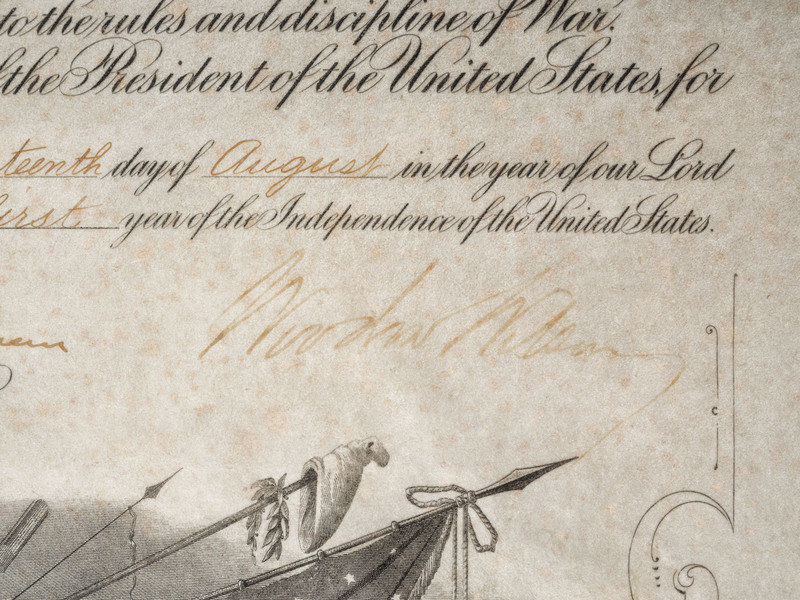 to the rules and discipline of War.
the President of the United States, for
teenth day of August in the year of our Lord
first year of the Independence of the United States.
Woodrow Wilson